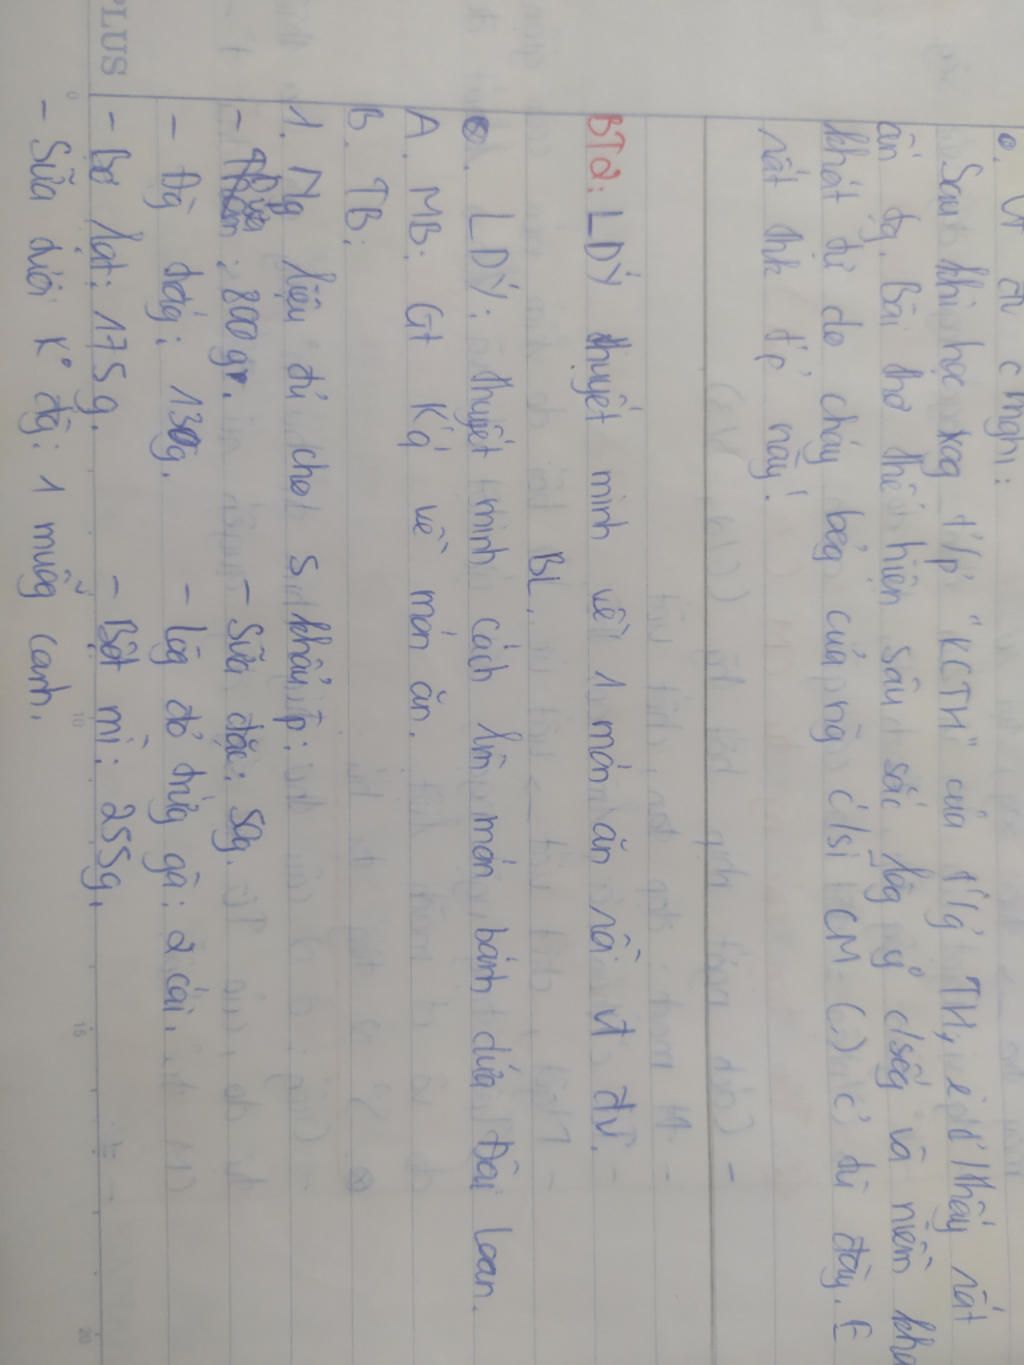 Vt đv c mghi:
Sau khi học xog t/p "KCTH" của t/g TH, e thấy rất
ấn tg. Bài thơ thể hiện sâu sắc lòg y c/sốg và niềm kha
khát tự do cháy bỏg của ng c/sĩ CM (.) c' tù đày. E
rất thk t/p này!
BTd: LDY thuyết minh về 1 món ăn rồi vt đv.
BL
LDY: thuyết minh cách làm món bánh dứa Đài Loan.
A. MB: Gt Kq về món ăn.
B. TB:
1. Ng liệu đủ cho 5 khẩu p:
- Dứa: 800gr. - Sữa đặc: 50g.
- Đg đcág: 130g. - Lòg đỏ trứg gà: 2 cái.
- bơ lạt: 175g. - Bột mì: 255g.
- Sữa tươi K° đg: 1 muỗg canh.
PLUS
0
10
15
20